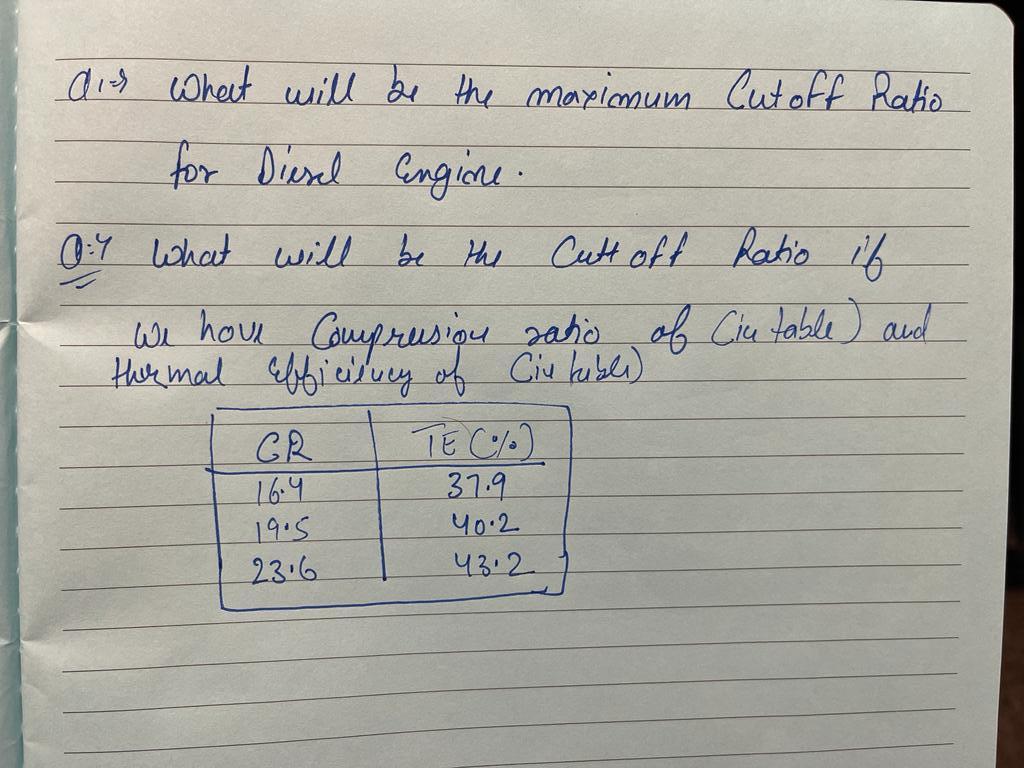 Q1→ What will be the maximum Cutoff Ratio
for Diesel Engine.
Q:4 What will be the Cutt off Ratio if
we have Compresion ratio of (in table) and
thermal Efficiency of (in table)
CR TE (%)
16.4 37.9
19.5 40.2
23.6 43.2